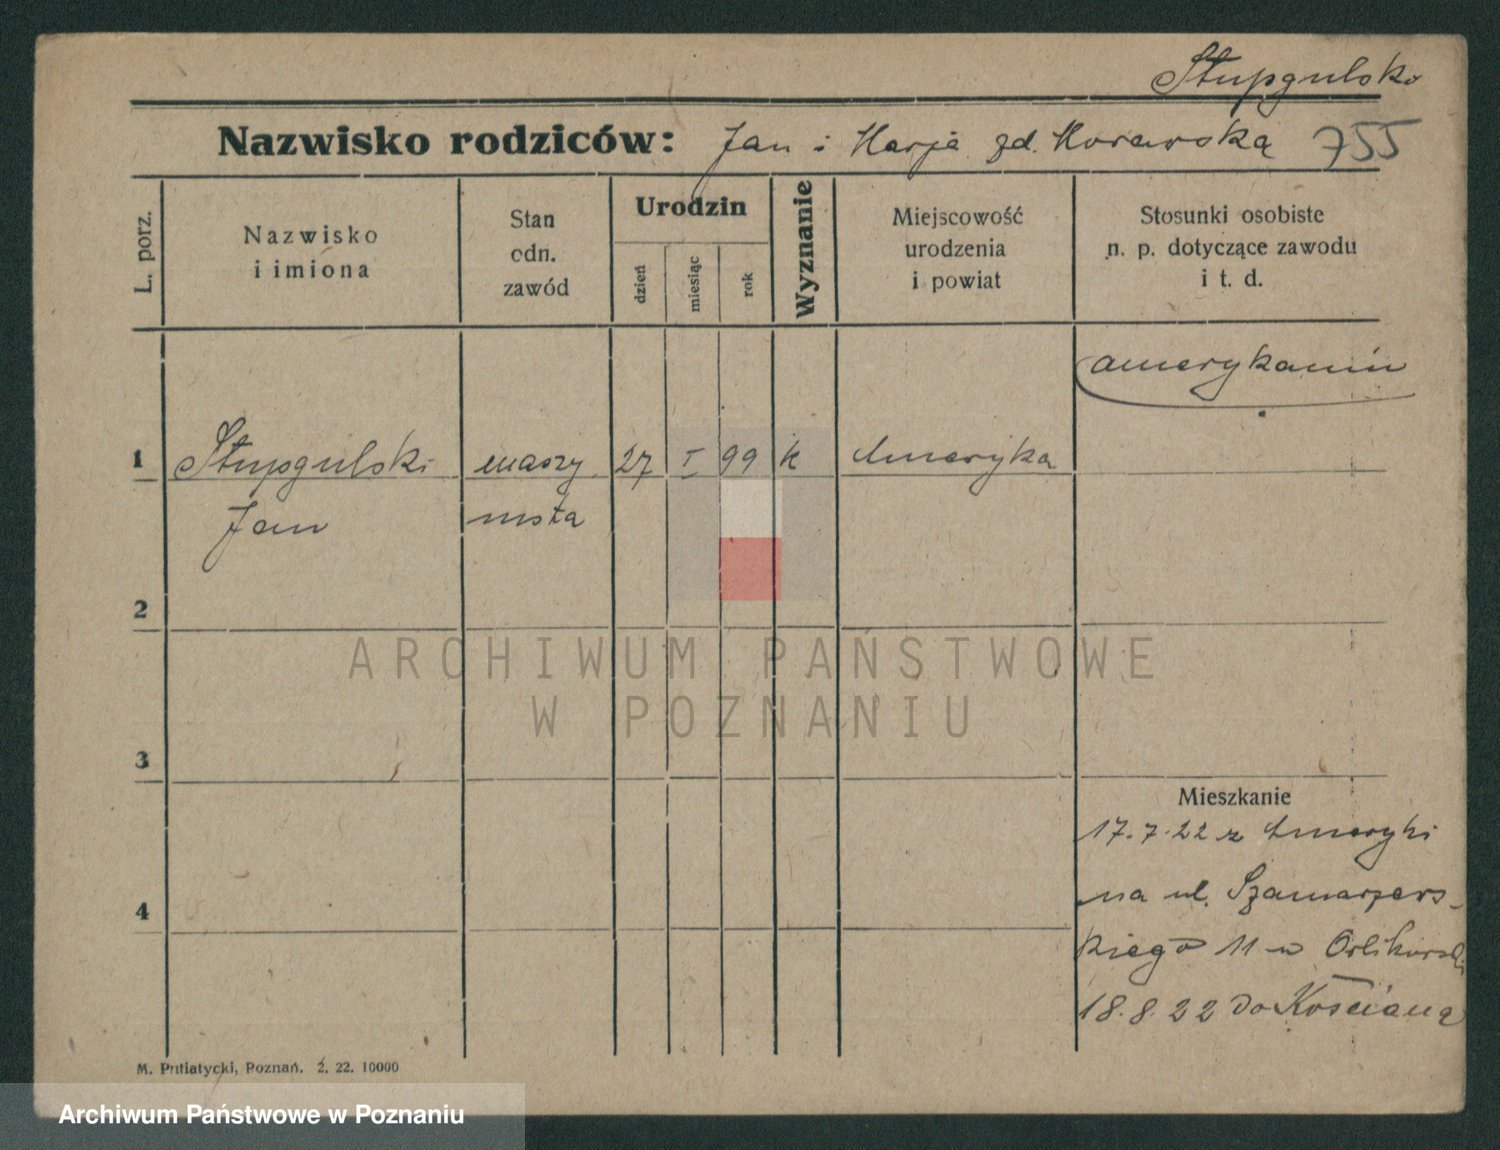 Stupgulsko
Nazwisko rodziców: Jan i Marja zd. Morawska 755
L. porz.
Nazwisko
i imiona
Stan
odn.
zawód
Urodzin
dzień
miesiąc
rok
Wyznanie
Miejscowość
urodzenia
i powiat
Stosunki osobiste
n. p. dotyczące zawodu
i t. d.
amerykanin
1 Stupgulski maszy 27 I 99 k Ameryka
Jan nista
2
3
4
Mieszkanie
17.7.22 z Ameryki
na ul. Szamarzews-
kiego 11 w
18.8.22 do Kościana
M. Putiatycki, Poznań. 2. 22. 10000
ARCHIWUM PAŃSTWOWE
W POZNANIU
Archiwum Państwowe w Poznaniu